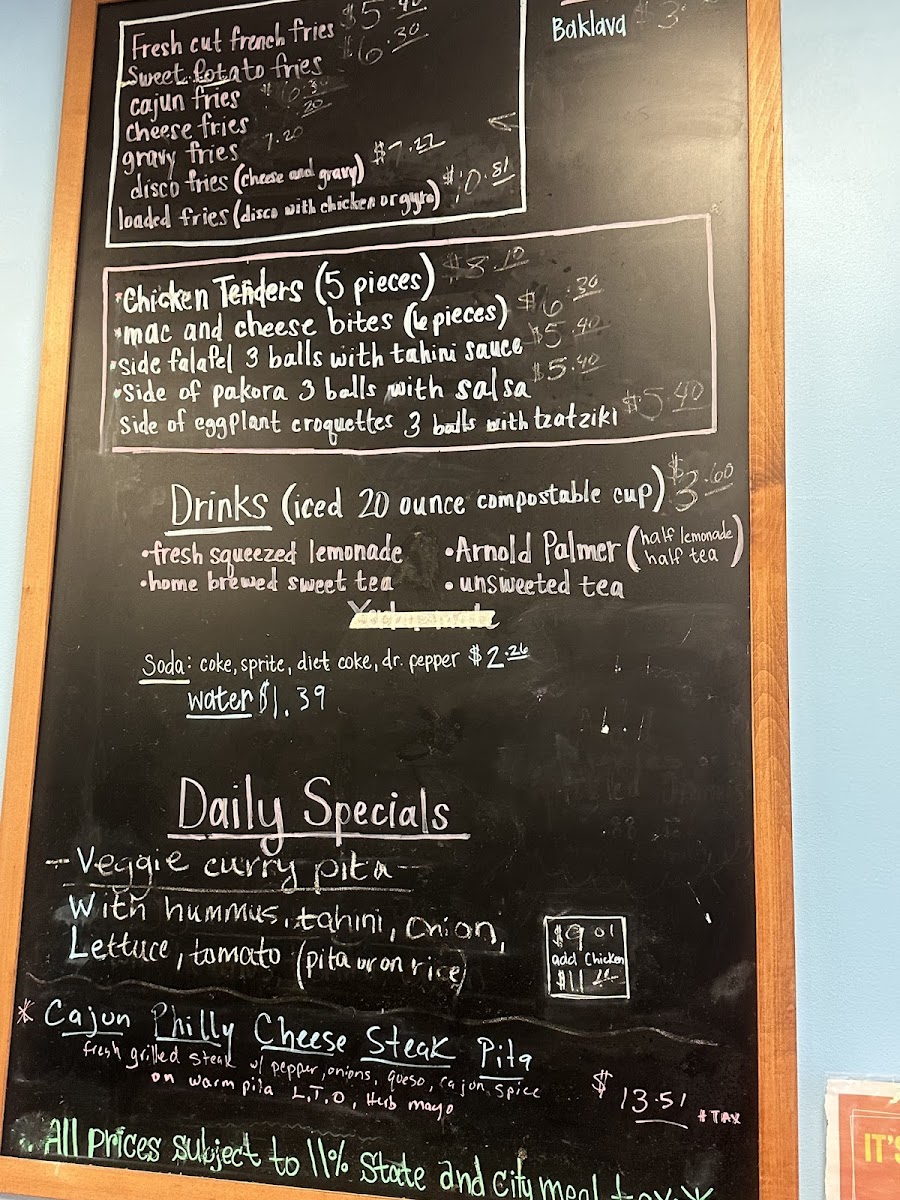 Baklava $3
Fresh cut french fries $5.40
Sweet Potato fries $6.30
cajun fries
cheese fries
gravy fries 7.20
disco fries (cheese and gravy) $7.22
loaded fries (disco with chicken or gyro) $10.81
*Chicken Tenders (5 pieces) $8.10
*mac and cheese bites (6 pieces) $6.30
•side falafel 3 balls with tahini sauce $5.40
•Side of pakora 3 balls with salsa $5.40
Side of eggplant croquettes 3 balls with tzatziki $5.40
Drinks (iced 20 ounce compostable cup) $3.60
•fresh squeezed lemonade •Arnold Palmer (half lemonade half tea)
•home brewed sweet tea •unsweeted tea
Soda: coke, sprite, diet coke, dr. pepper $2.26
water $1.39
Daily Specials
- Veggie curry pita -
With hummus, tahini, onion,
Lettuce, tomato (pita or on rice)
$9.01
add chicken
* Cajun Philly Cheese Steak Pita
fresh grilled steak w/ pepper, onions, queso, cajun spice
on warm pita L.T.O, Herb mayo
$13.51 +TAX
All Prices subject to 11% State and City meal tax *
IT'S